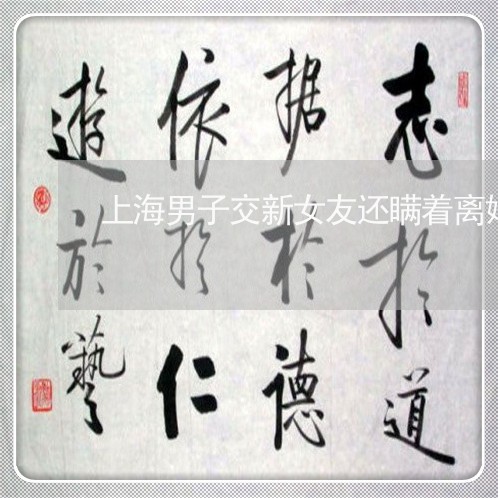 志於道
据於德
依於仁
遊於藝
上海男子交新女友还瞒着离